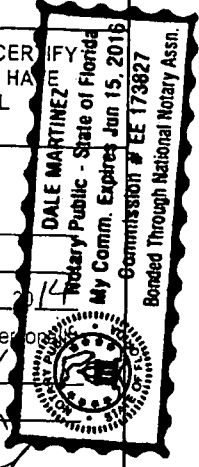 CERTIFY
HAVE
DALE MARTINEZ
Notary Public - State of Florida
My Comm. Expires Jun 15, 2016
Commission # EE 173827
Bonded Through National Notary Assn.
2014
NOTARY PUBLIC
STATE OF